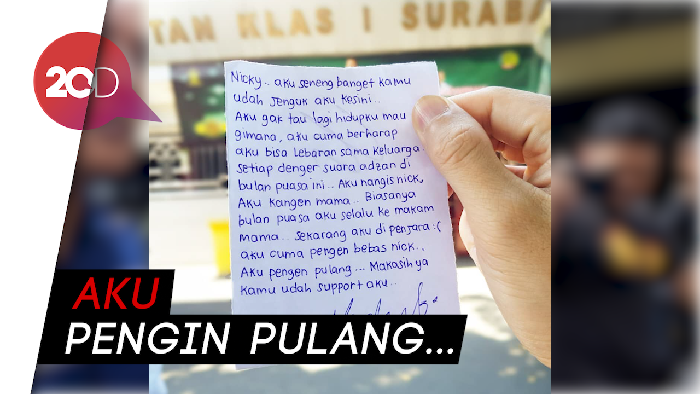 TAN KLAS I SURABA
20D
Nicky.. aku seneng banget kamu
udah jenguk aku kesini..
Aku gak tau lagi hidupku mau
gimana, aku cuma berharap
aku bisa lebaran sama keluarga.
setiap denger suara adzan di
bulan puasa ini.. Aku nangis nick,
Aku kangen mama.. Biasanya
bulan puasa aku selalu ke makam
mama.. sekarang aku di penjara :(
aku cuma pengen bebas nick..
Aku pengen pulang... Makasih ya
kamu udah support aku..
AKU
PENGIN PULANG...